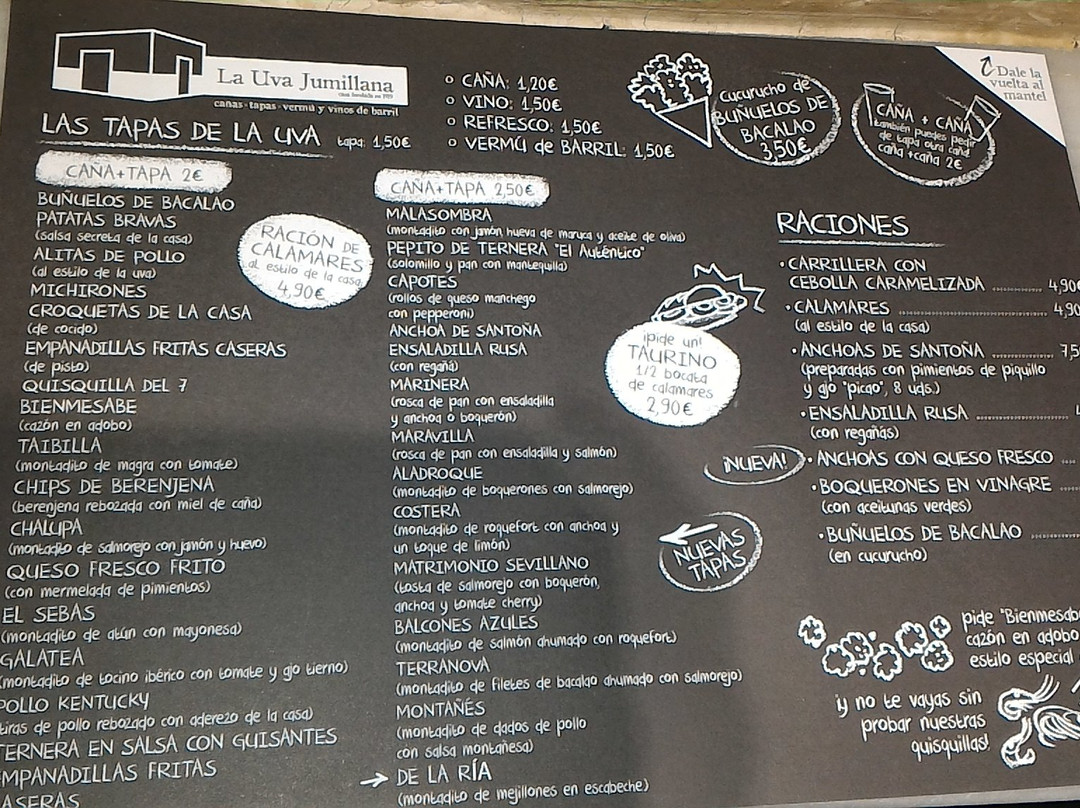 La Uva Jumillana
cañas·tapas·vermú y vinos de barril
LAS TAPAS DE LA UVA tapa: 1,50€
CAÑA: 1,20€
VINO: 1,50€
REFRESCO: 1,50€
VERMÚ de BARRIL: 1,50€
Cucurucho de
BUÑUELOS DE
BACALAO
3,50€
CAÑA + CAÑA
también puedes pedir
de tapa otra caña!
caña + caña 2€
Dale la
vuelta al
mantel
CAÑA+TAPA 2€
BUÑUELOS DE BACALAO
PATATAS BRAVAS
(salsa secreta de la casa)
ALITAS DE POLLO
(al estilo de la uva)
MICHIRONES
CROQUETAS DE LA CASA
(de cocido)
EMPANADILLAS FRITAS CASERAS
(de pisto)
QUISQUILLA DEL 7
BIENMESABE
(cazón en adobo)
TAIBILLA
(montadito de magra con tomate)
CHIPS DE BERENJENA
(berenjena rebozada con miel de caña)
CHALUPA
(montadito de salmorejo con jamón y huevo)
QUESO FRESCO FRITO
(con mermelada de pimientos)
EL SEBAS
(montadito de atún con mayonesa)
GALATEA
(montadito de tocino ibérico con tomate y ajo tierno)
POLLO KENTUCKY
tiras de pollo rebozado con aderezo de la casa)
TERNERA EN SALSA CON GUISANTES
MPANADILLAS FRITAS
ASERAS
RACIÓN DE
CALAMARES
al estilo de la casa
4,90€
CAÑA+TAPA 2,50€
MALASOMBRA
(montadito con jamón hueva de maruca y aceite de oliva)
PEPITO DE TERNERA "El Auténtico"
(solomillo y pan con mantequilla)
CAPOTES
(rollos de queso manchego
con pepperoni)
ANCHOA DE SANTOÑA
ENSALADILLA RUSA
(con regañá)
MARINERA
(rosca de pan con ensaladilla
y anchoa o boquerón)
MARAVILLA
(rosca de pan con ensaladilla y salmón)
ALADROQUE
(montadito de boquerones con salmorejo)
COSTERA
(montadito de roquefort con anchoa y
un toque de limón)
MATRIMONIO SEVILLANO
(tosta de salmorejo con boquerón,
anchoa y tomate cherry)
BALCONES AZULES
(montadito de salmón ahumado con roquefort)
TERRANOVA
(montadito de filetes de bacalao ahumado con salmorejo)
MONTAÑÉS
(montadito de dados de pollo
con salsa montañesa)
DE LA RÍA
(montadito de mejillones en escabeche)
¡pide un!
TAURINO
1/2 bocata
de calamares
2,90€
¡NUEVA!
NUEVAS
TAPAS
RACIONES
·CARRILLERA CON
CEBOLLA CARAMELIZADA ........... 4,90€
·CALAMARES ........................ 4,90
(al estilo de la casa)
·ANCHOAS DE SANTOÑA ............ 7,5
(preparadas con pimientos de piquillo
y ajo "picao", 8 uds.)
·ENSALADILLA RUSA ....................
(con regañás)
·ANCHOAS CON QUESO FRESCO ....
·BOQUERONES EN VINAGRE .....
(con aceitunas verdes)
·BUÑUELOS DE BACALAO ..........
(en cucurucho)
pide "Bienmesab
cazón en adobo
estilo especial
¡y no te vayas sin
probar nuestras
quisquillas!